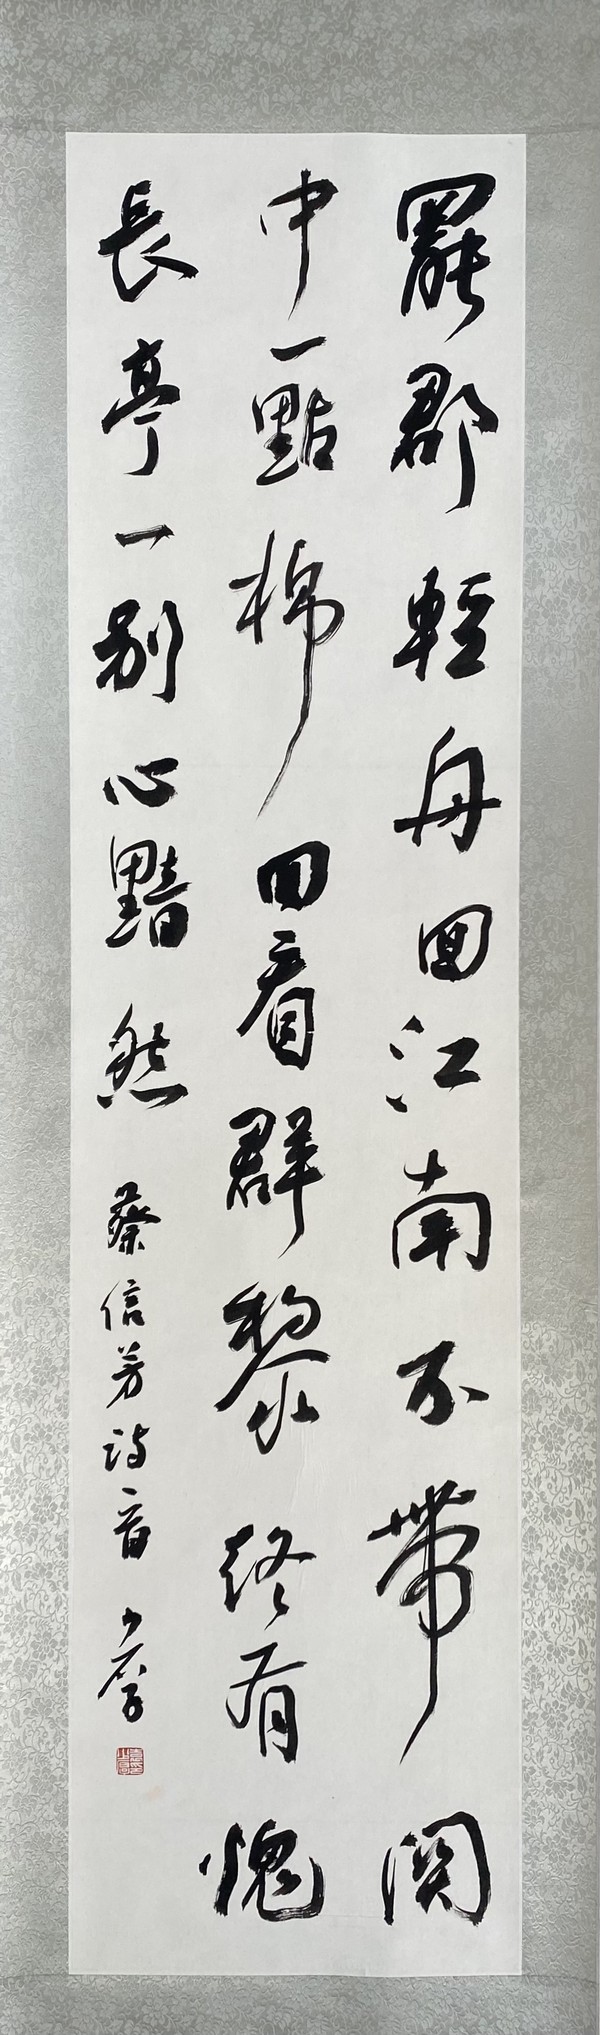 罷郡輕舟回江南不帶関
中一點棉回看群黎終有愧
長亭一別心黯然 蔡信芳詩一首